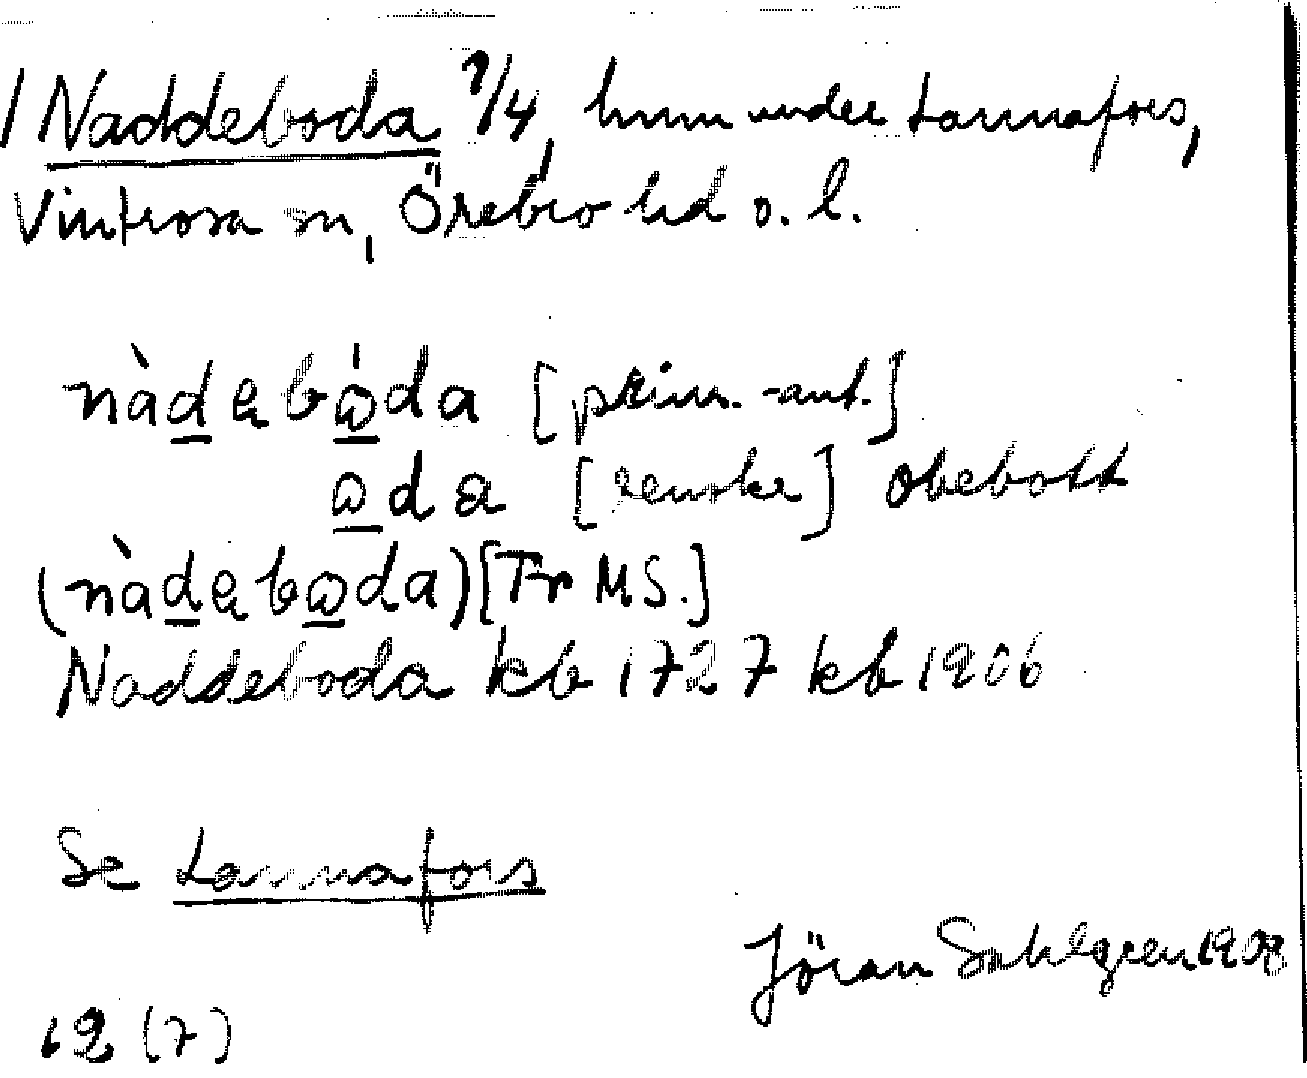 / Naddeboda 1/4, hmn under Lannafors,
Vintrosa sn, Örebro hd o. l.
nàdebòda [prim.-ant.]
oda [renskr] obebott
(nàdeboda) [Fr MS.]
Naddeboda kb 1727 kb 1906
Se Lannafors
Jöran Sahlgren 1908
12 (7)